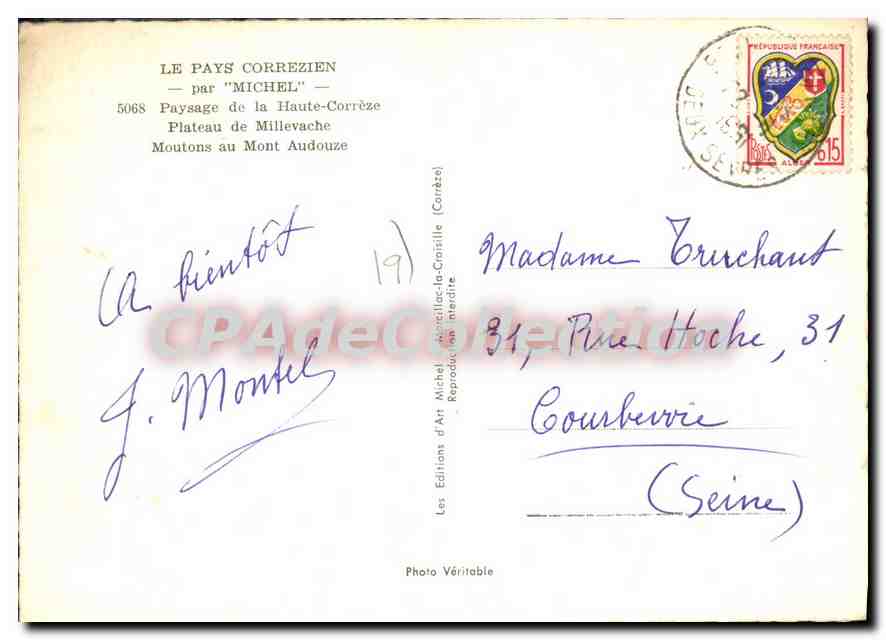 LE PAYS CORREZIEN
— par "MICHEL" —
5068 Paysage de la Haute-Corrèze
Plateau de Millevache
Moutons au Mont Audouze
A bientôt
J. Montel
19)
Les Editions d'Art Michel, Marcillac-la-Croisille (Corrèze)
Reproduction interdite
RÉPUBLIQUE FRANÇAISE
POSTES
ALGER
0,15
DEUX SEVRES
Madame Truchant
31, Rue Hoche, 31
Courbevoie
(Seine)
CPAdeCollection
Photo Véritable